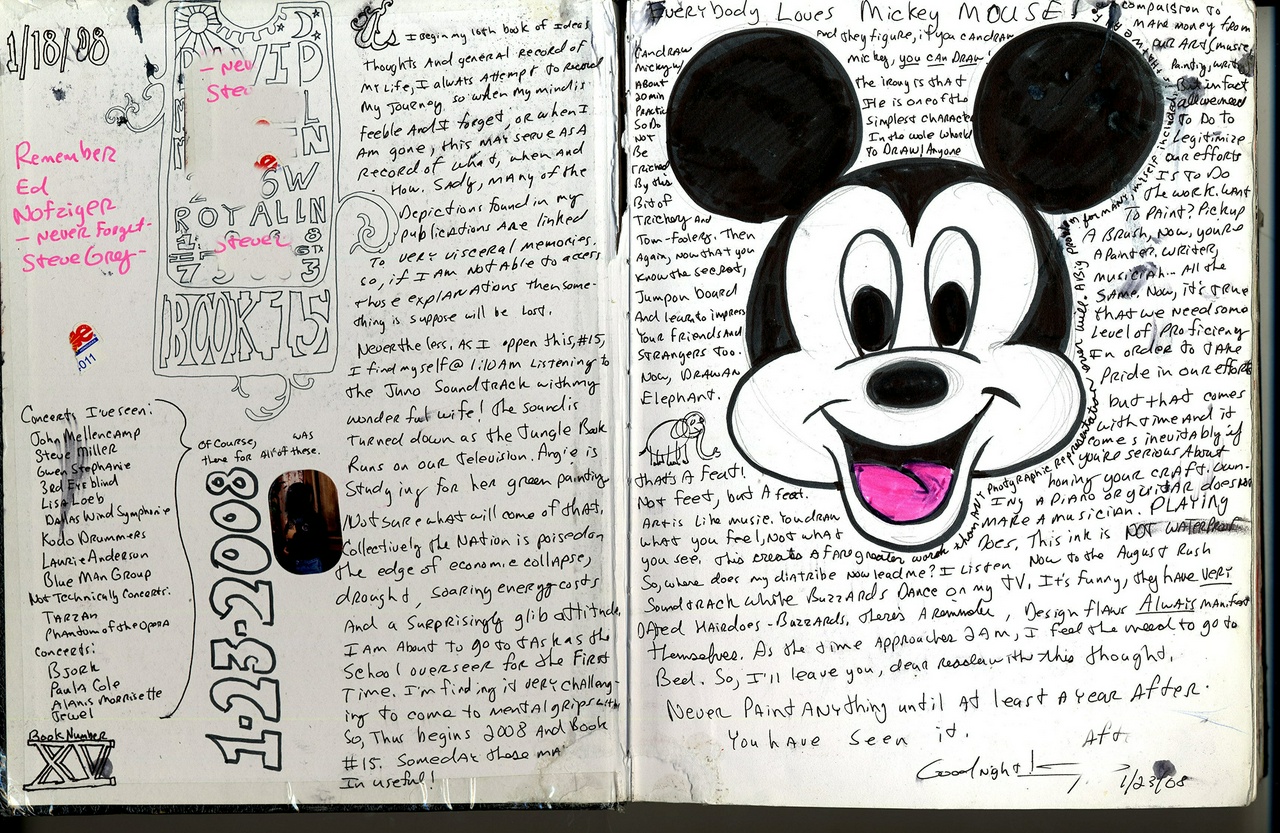 1/18/08
Remember
Ed
Nofziger
- Never Forget -
Steve Grey -
- Nev
Steve
ROYAL LN
Steve
BOOK 15
2011
Concerts I've seen:
John Mellencamp
Steve Miller
Gwen Stephanie
3rd Eye blind
Lisa Loeb
Dallas Wind Symphonie
Kodo Drummers
Laurie Anderson
Blue Man Group
Not Technically Concerts:
Tarzan
Phantom of the Opera
Concerts:
Bjork
Paula Cole
Alanis Morrisette
Jewel
Of course, was
there for all of these.
1-23-2008
Book Number
XV
I Begin my 15th book of Ideas
Thoughts And general record of
my Life, I always Attempt to Record
My Journey, so when my mind is
feeble And I forget, or when I
Am gone, this may serve as A
record of what, when and
How. Sady, many of the
Depictions found in my
publications Are linked
To very visceral memories.
So, if I am not Able to access
those explanations then some-
thing is suppose will be lost.
Nevertheless. As I oppen this, #15,
I find myself @ 1:10 Am Listening to
the Juno Soundtrack with my
wonderful wife! The sound is
turned down as the Jungle Book
Runs on our Television. Angie is
Studying for her green painting
Not sure what will come of that.
Collectively the Nation is poised on
the edge of economic collapse,
drought, soaring energy costs
And a Surprisingly glib attitude,
I am About to go to task as the
School overseer for the First
Time. I'm finding it very challeng-
ing to come to mental grips with
So, Thus begins 2008 And Book
#15. Someday these ma
In useful!
Everybody Loves Mickey Mouse!
And they figure, if you can draw
mickey, you can Draw!
the irony is that
He is one of the
simplest character
In the wole world
to DRAW! Anyone
Can draw
Mickey w/
About
20 min
Practice
So Do
Not
Be
Tricked
By this
Bit of
Trickory and
Tom-Foolery. Then
Again, Now that you
Know the secret,
Jump on board
And learn to impress
Your friends And
Strangers too.
Now, DRAW AN
Elephant.
that's A Feat!
Not feet, but A feat.
Art is Like music. You draw
what you feel, Not what
you see. This creates A far greater work than Any photographic representation ever will. A Big problem for many, myself included,
compulsion to
make money from
our Art (music
Painting, write
But in fact
all we need
To Do to
Legitimize
our efforts
Is to Do
the work. Want
To Paint? Pick up
A Brush, Now, you're
A Painter, Writer,
musician... All the
Same. Now, it's true
that we need some
Level of Proficiency
In order to take
Pride in our efforts
but that comes
with time And it
comes inevitably if
you're serious About
honing your craft. Own-
Ing a Piano or guitar does not
make a musician. PLAYING
Does. This ink is NOT WATERPROOF
So, where does my diatribe now lead me? I Listen Now to the August Rush
Soundtrack while Buzzards Dance on my TV. It's funny, they have very
DAted Hairdoes - Buzzards. There's A reminder, Design flaws Always manifest
themselves. As the time Approaches 2 Am, I feel the need to go to
Bed. So, I'll leave you, dear reader with this thought.
Never Paint Anything until At least A year After
You have seen it. Aft
Good Night!
1/23/08